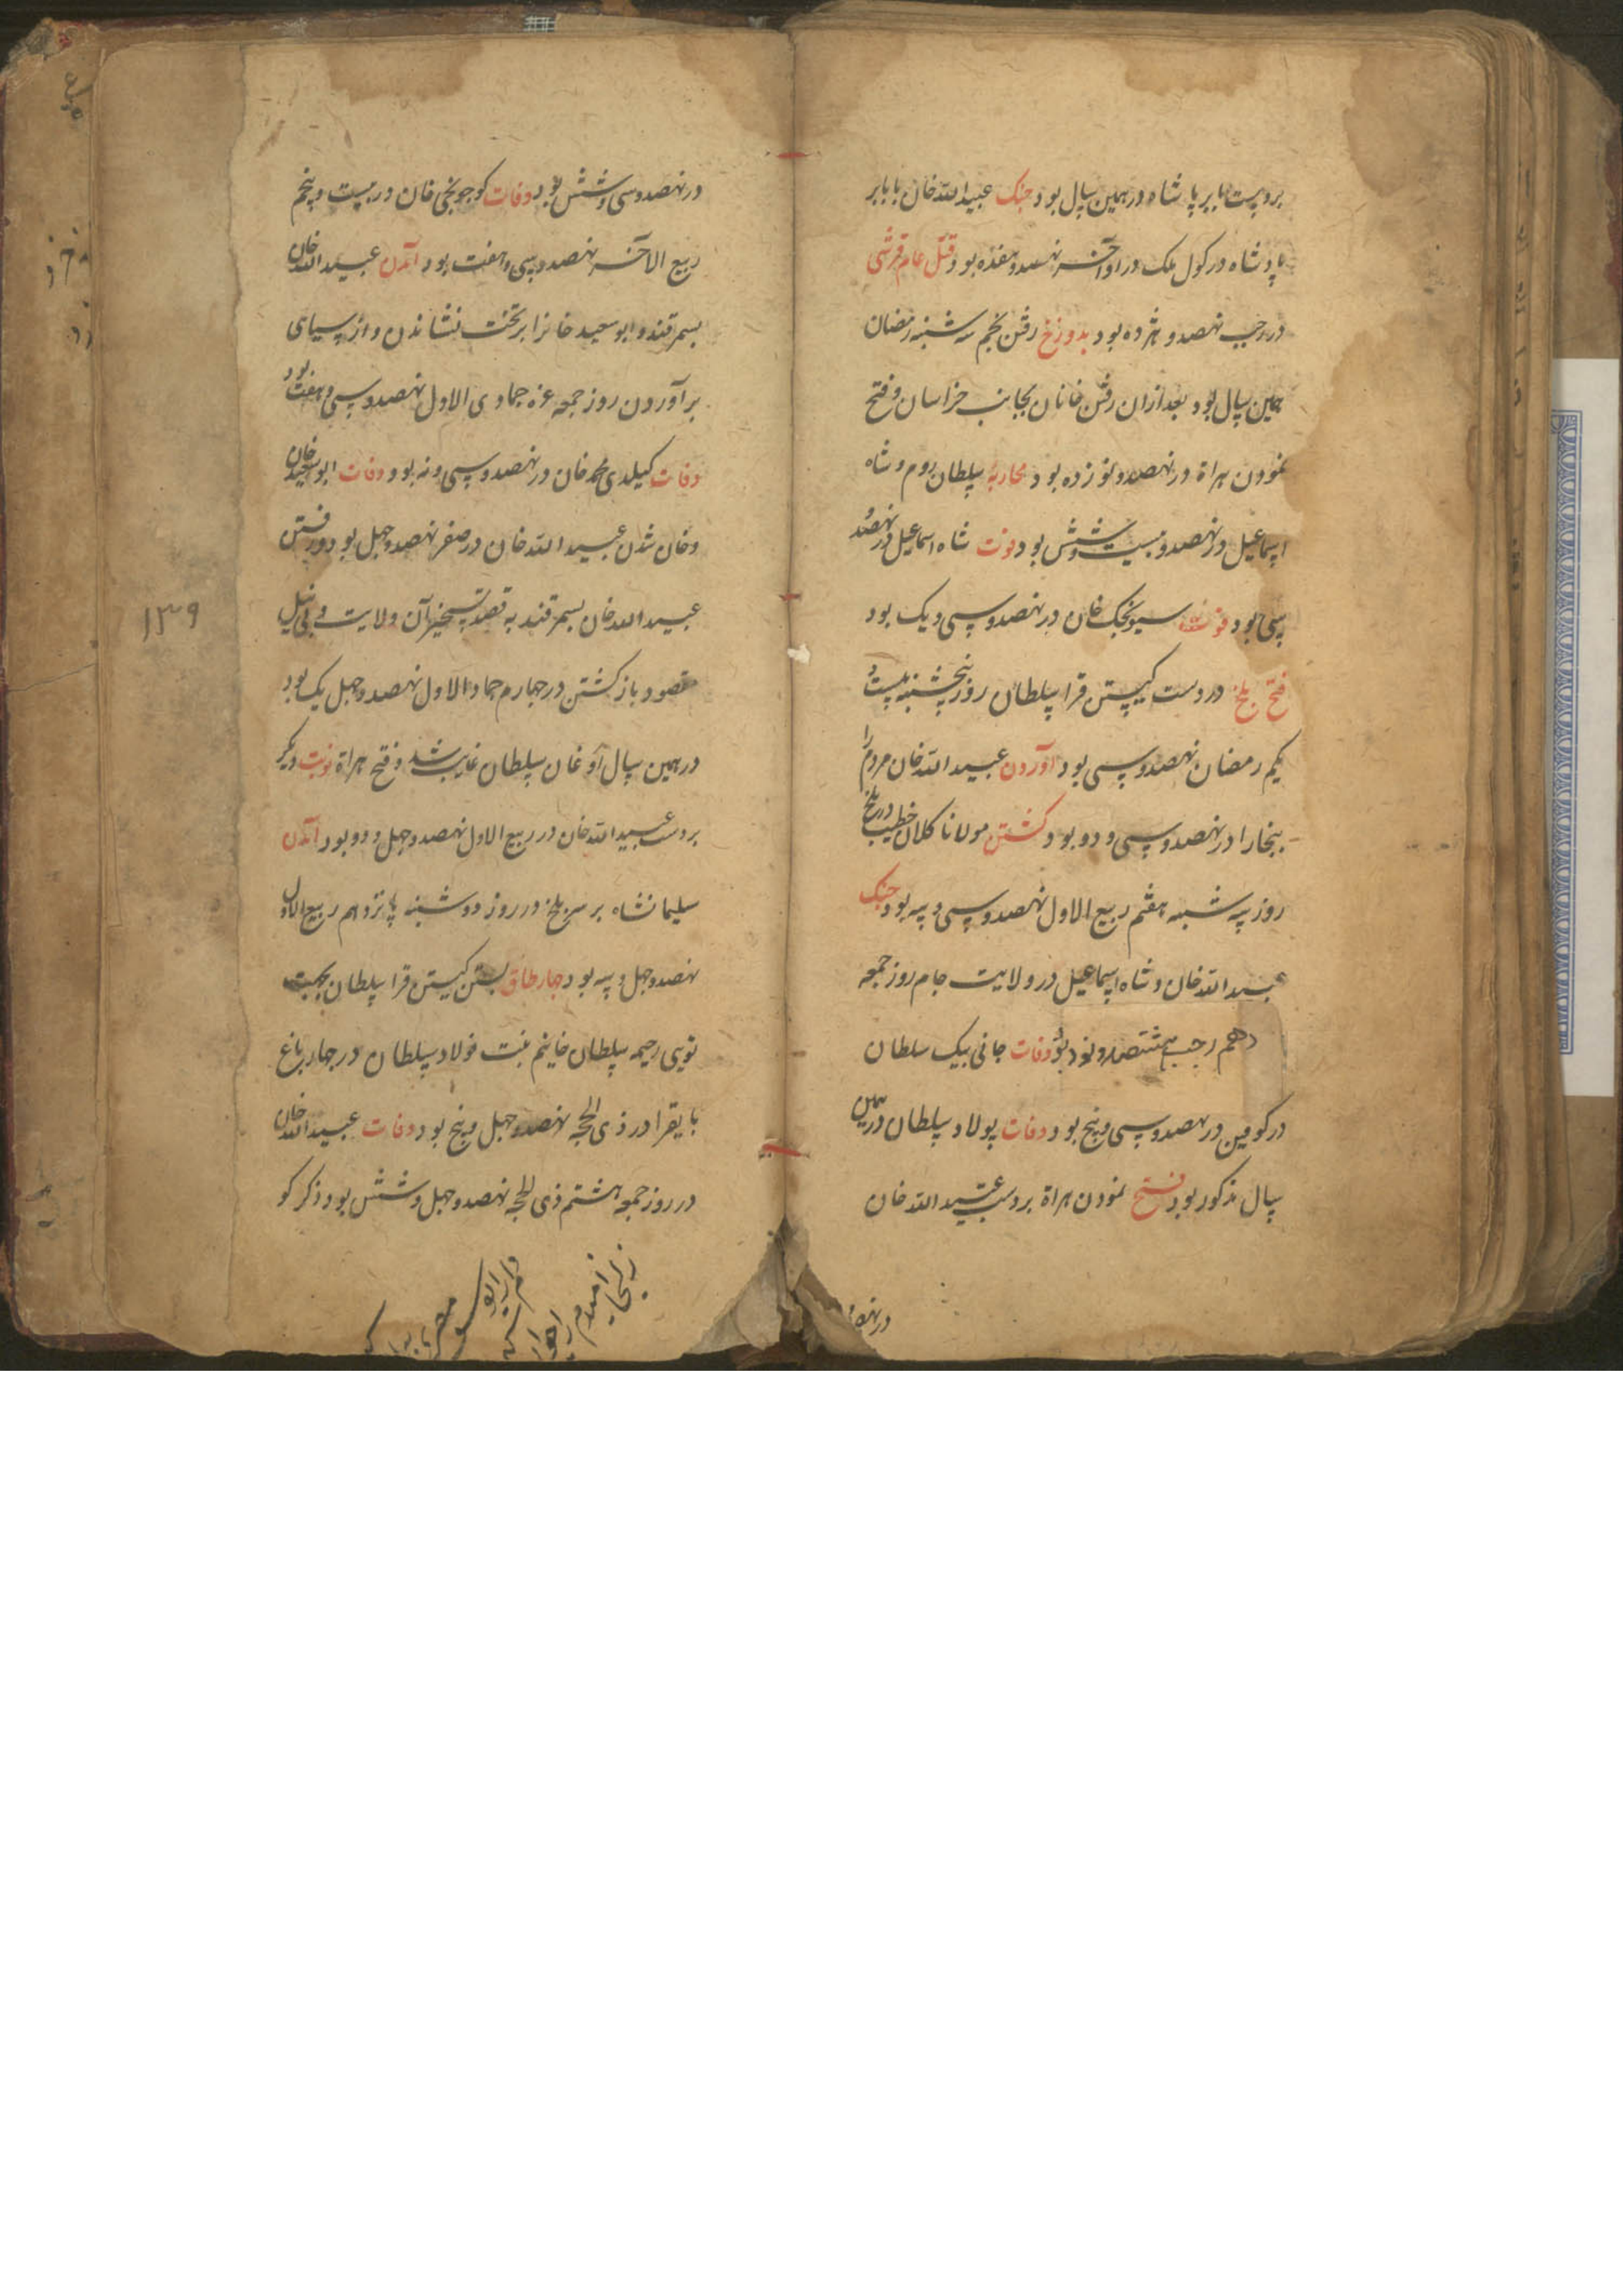 بردست بابر پادشاه درهمین سال بود جنک عبیدالله خان با بابر
پادشاه در کول ملک در اواخر نهصد و هفده بود قتل عام قرشی
در رجب نهصد و هژده بود بدوزخ رفتن نجم سه شنبه رمضان
همین سال بود بعد ازان رفتن خانان بجانب خراسان و فتح
نمودن هراة در نهصد و نوزده بود محاربهٔ سلطان روم و شاه
اسماعیل در نهصد و بیست و شش بود فوت شاه اسماعیل در نهصد و
سی بود فوت سیونجک خان در نهصد و سی و یک بود
فتح بلخ در دست کیستن قرا سلطان روز پنجشنبه بیست و
یکم رمضان نهصد و سی بود آوردن عبیدالله خان مردم را
ببخارا در نهصد و سی و دو بود کشتن مولانا کلان خطیب در بلخ
روز سه شنبه هفتم ربیع الاول نهصد و سی و سه بود جنک
عبیدالله خان و شاه اسماعیل در ولایت جام روز جمعه
دهم رجب هشتصد و نود بود وفات جانی بیک سلطان
در کرمین در نهصد و سی و پنج بود وفات پولاد سلطان درهمین
سال مذکور بود فتح نمودن هراة بردست عبیدالله خان
در نهصد
در نهصد و سی و شش بود وفات کوچونجی خان در بیست و پنجم
ربیع الاخر نهصد و سی و هفت بود آمدن عبیدالله خان
بسمرقند و ابوسعید خانرا برتخت نشاندن و از سیاهی
برآوردن روز جمعه غره جمادی الاول نهصد و سی و هفت بود
وفات کیلدی محمد خان در نهصد و سی و نه بود وفات ابوسعید خان
و خان شدن عبیدالله خان در صفر نهصد و چهل بود و رفتن
عبیدالله خان بسمرقند به قصد تسخیر آن ولایت و بی نیل
مقصود باز کشتن در چهارم جماد الاول نهصد و چهل یک بود
درهمین سال آوغان سلطان غایب شد و فتح هراة نوبت دیکر
بردست عبیدالله خان در ربیع الاول نهصد و چهل و دو بود آمدن
سلیمانشاه بر سر بلخ در روز دوشنبه پانزدهم ربیع الاول
نهصد و چهل و سه بود چهار طاق بستن کیستن قرا سلطان بجهت
تویی رحیمه سلطان خانیم بنت فولاد سلطان در چهار باغ
بایقرا در ذی الحجه نهصد و چهل و پنج بود وفات عبیدالله خان
در روز جمعه هشتم ذی الحجه نهصد و چهل و شش بود ذکر کو
١٣٩